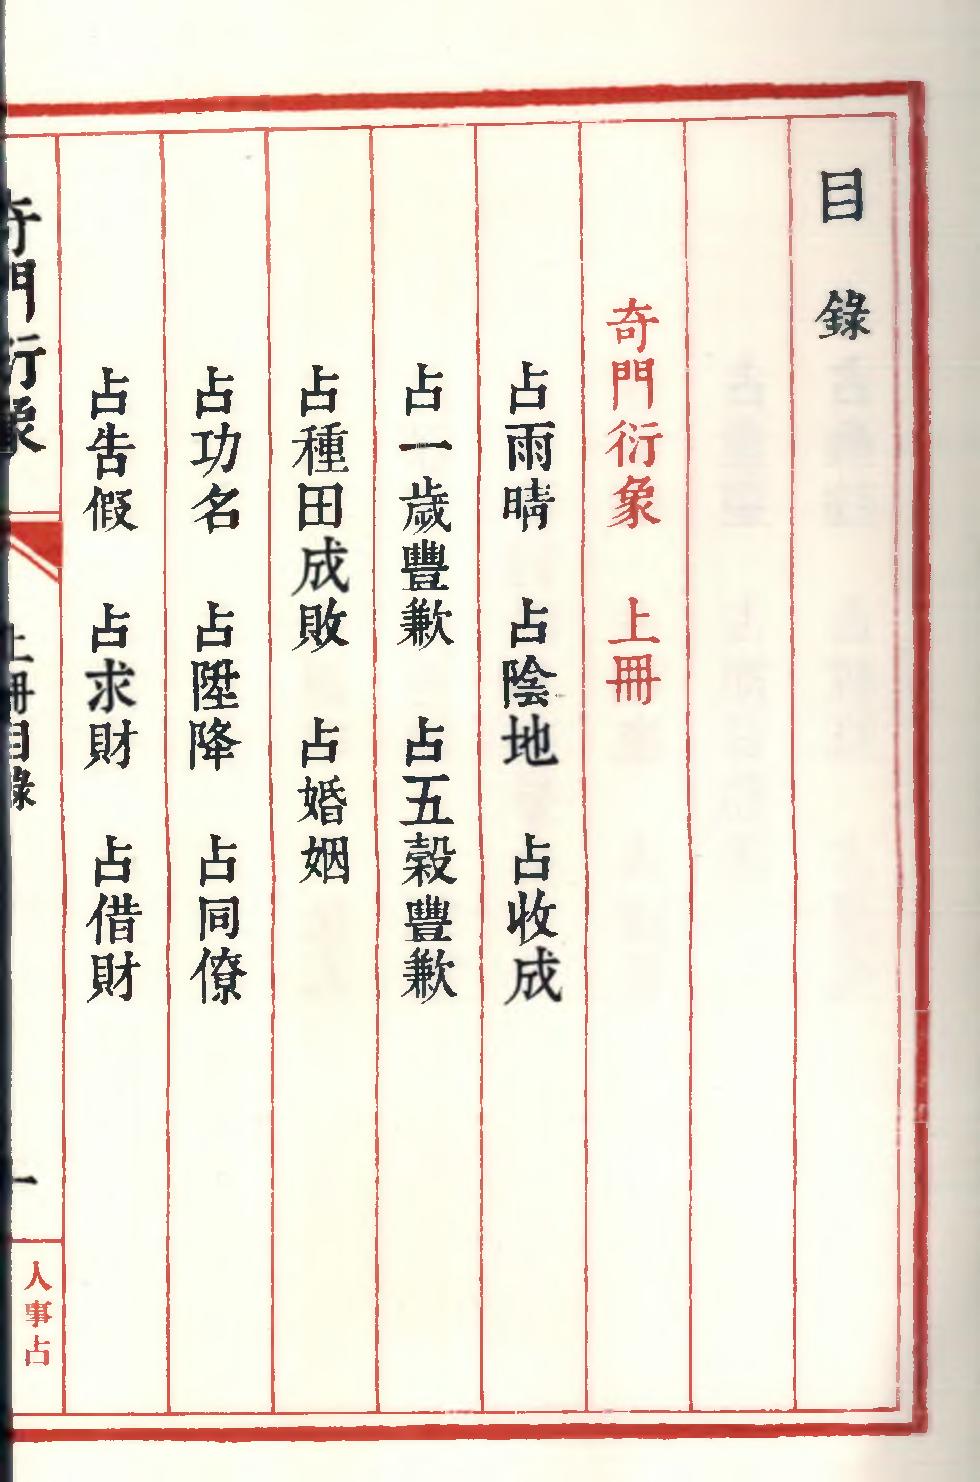 目錄
奇門衍象 上冊
占雨晴 占陰地 占收成
占一歲豐歉 占五穀豐歉
占種田成敗 占婚姻
占功名 占陞降 占同僚
占告假 占求財 占借財
奇門衍象
上冊目錄
一
人事占